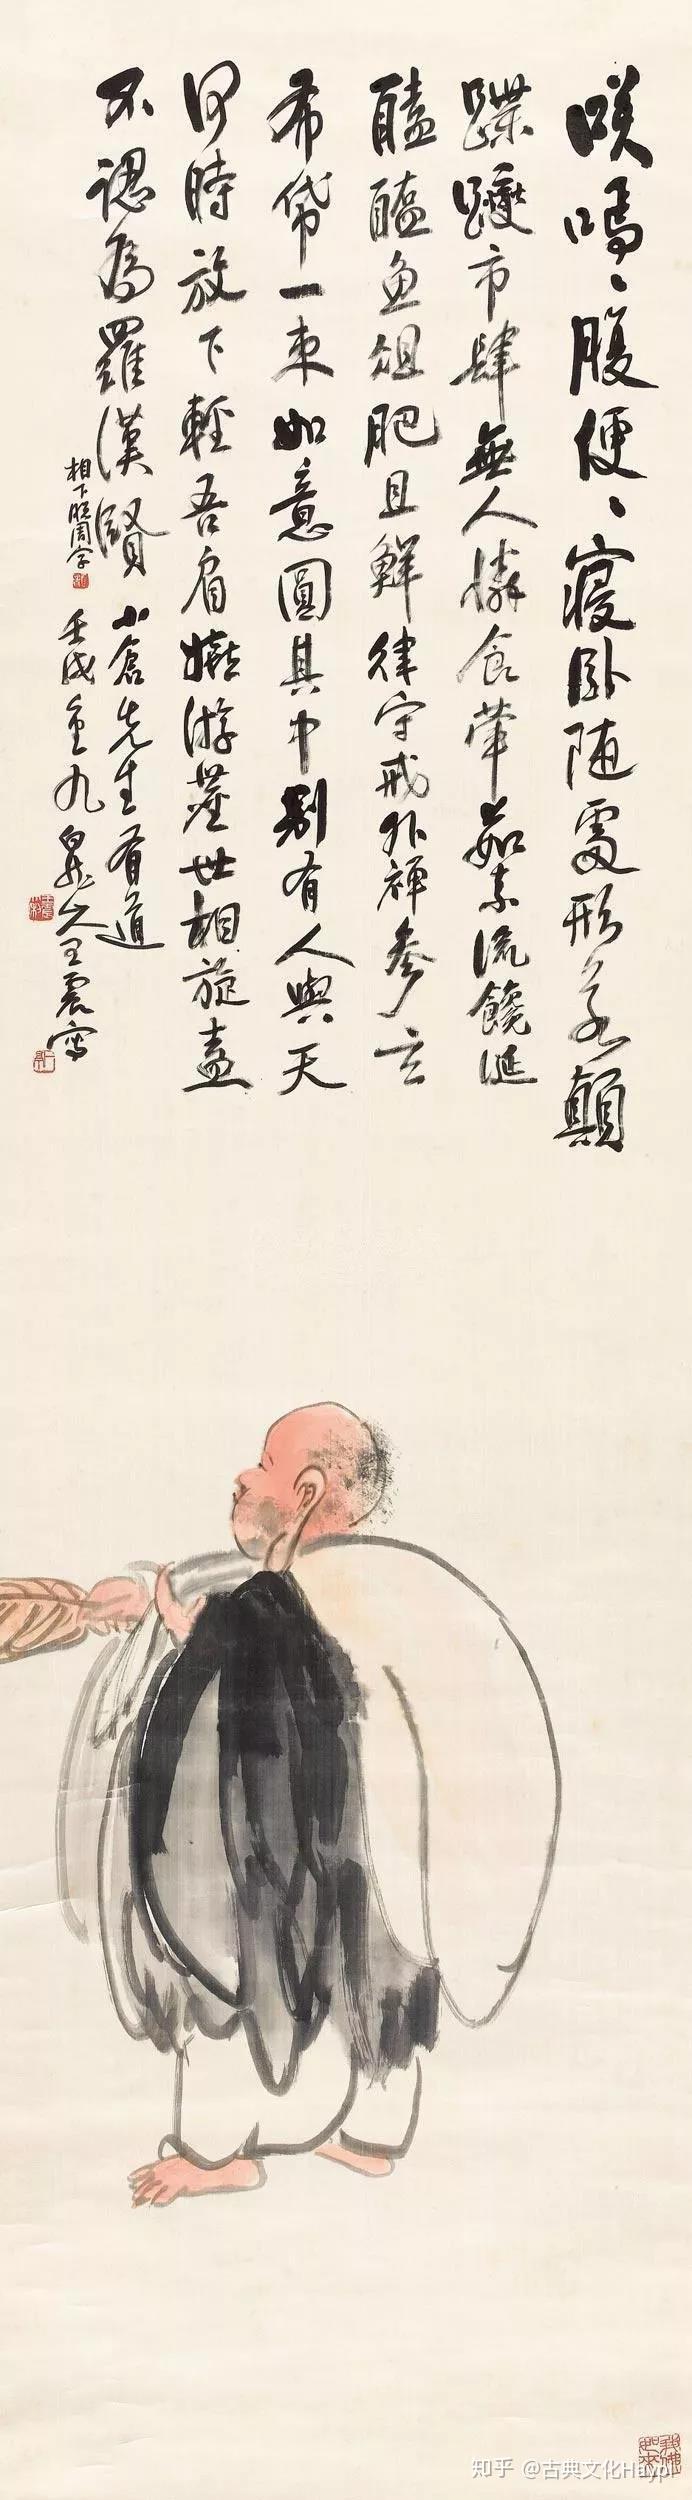 咲嗎、腹便、寢卧随處形若顛
蹀躞市肆無人憐食葷茹素流饞涎
魚俎肥且鮮律守戒外禅參玄
布袋一束如意圓其中別有人與天
何時放下輕吾肩嬉游塵世相旋
不認為羅漢賢 小倉先生有道
相下脱周字
壬戌重九 白龍山人王震寫
知乎 @古典文化Haypi